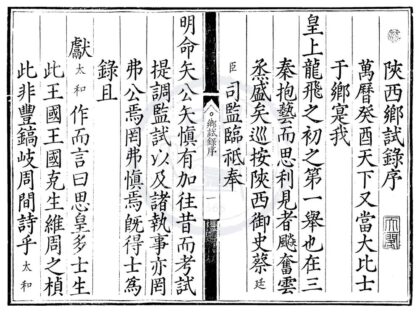 陝西鄉試錄序
萬曆癸酉天下又當大比士
于鄉寔我
皇上龍飛之初之第一舉也在三
秦抱藝而思利見者飈奮雲
烝盛矣巡按陝西御史蔡廷
臣司監臨祗奉
鄉試錄序
一
明命矢公矢慎有加往昔而考試
提調監試以及諸執事亦罔
弗公焉罔弗慎焉旣得士爲
錄且
獻太和作而言曰思皇多士生
此王國王國克生維周之楨
此非豐鎬岐周間詩乎太和